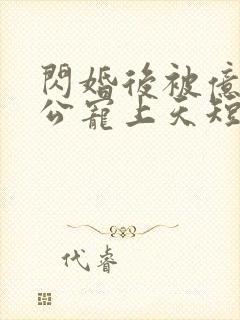 閃婚後被億
公寵上天短
代睿